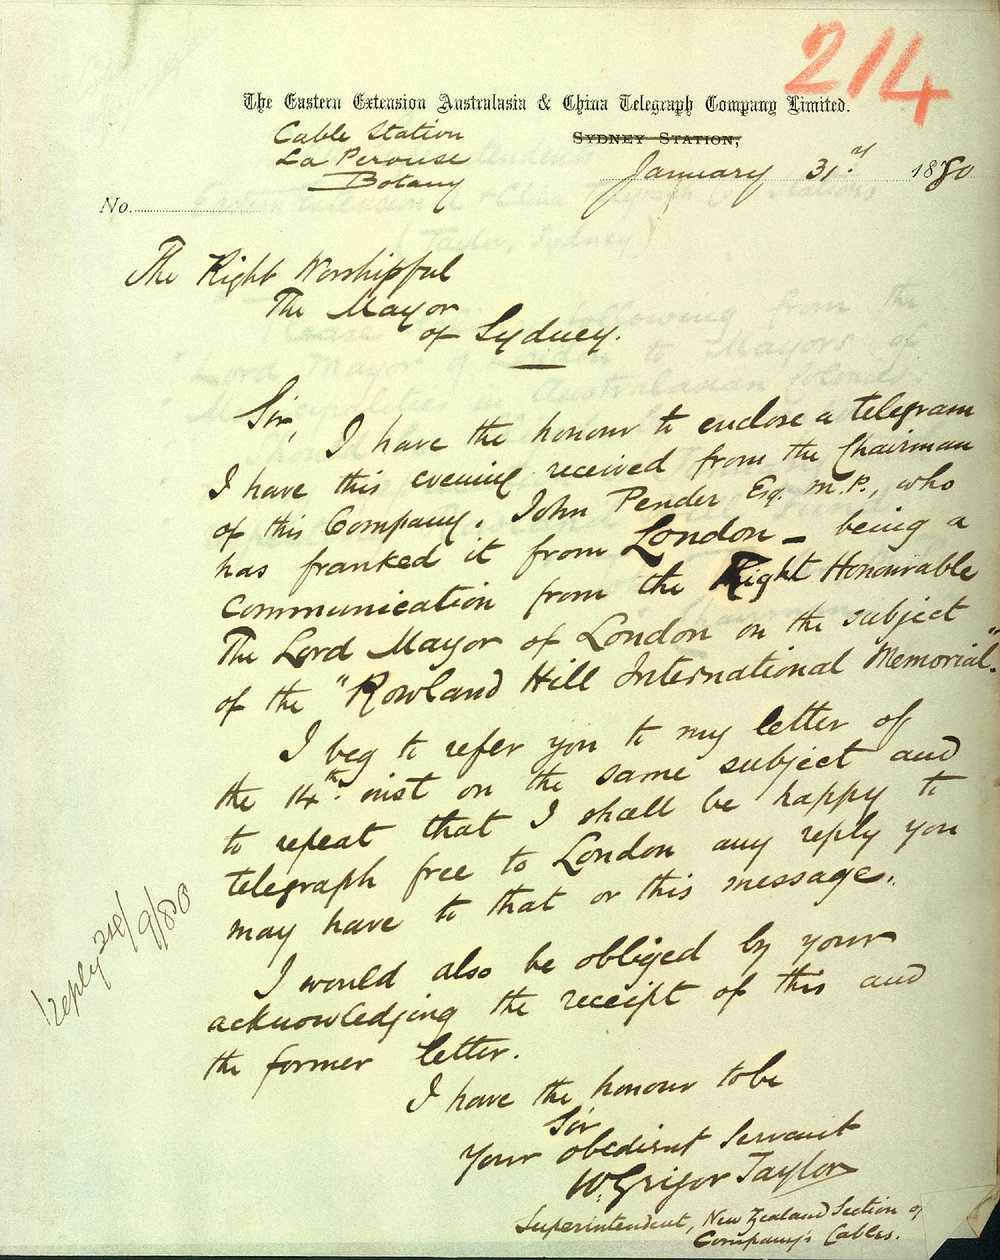 214
The Eastern Extension Australasia & China Telegraph Company Limited.
Cable Station
La Perouse
Botany
SYDNEY STATION,
January 31st 1880
No.
The Right Worshipful
The Mayor
of Sydney.
Sir,
I have the honour to enclose a telegram
I have this evening received from the Chairman
of this Company. John Pender Esq. M.P., who
has franked it from London – being a
communication from the Right Honourable
The Lord Mayor of London on the subject
of the "Rowland Hill International Memorial."
I beg to refer you to my letter of
the 14th inst on the same subject and
to repeat that I shall be happy to
telegraph free to London any reply you
may have to that or this message.
I would also be obliged by your
acknowledging the receipt of this and
the former letter.
I have the honour to be
Sir
Your obedient Servant
W. Grigor Taylor
Superintendent, New Zealand Section of
Company's Cables.
reply